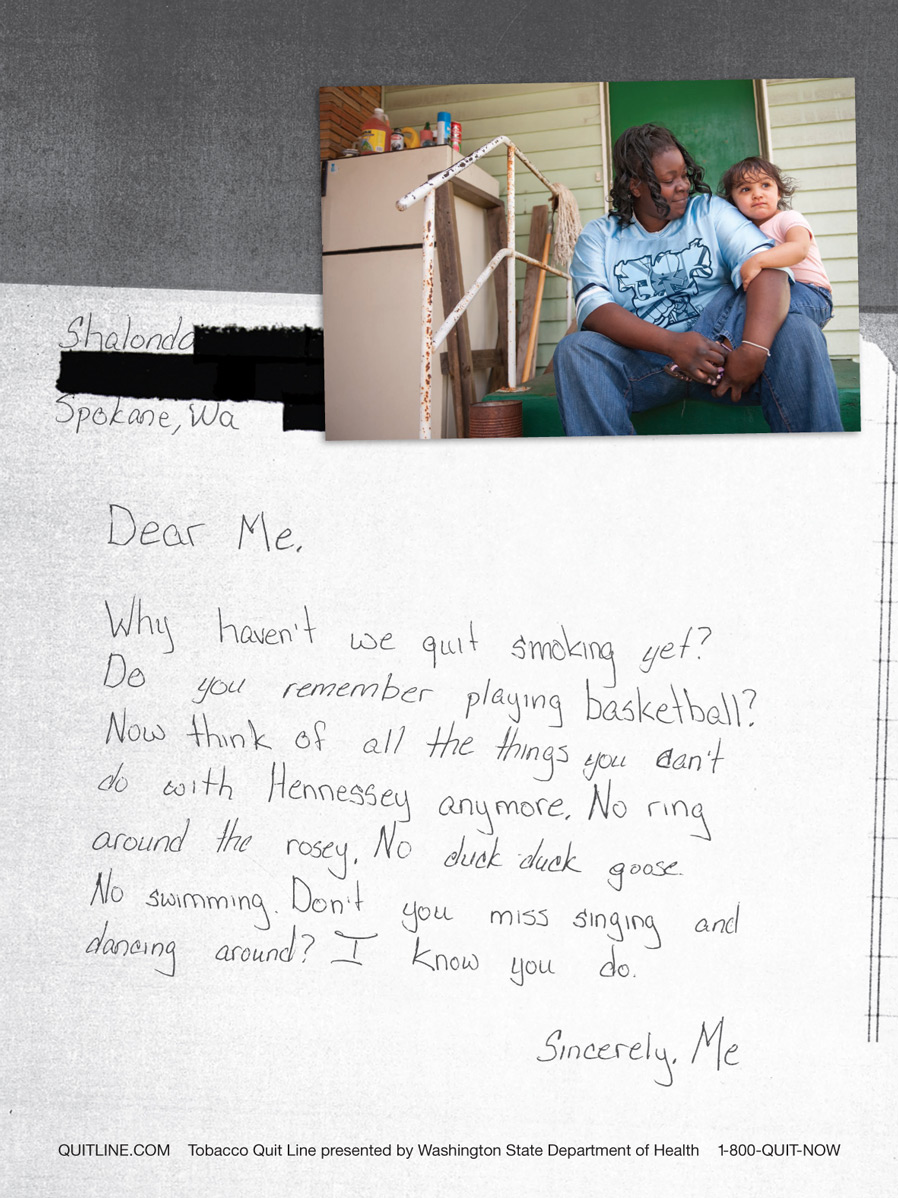 Shalonda
Spokane, Wa
Dear Me,
Why haven't we quit smoking yet?
Do you remember playing basketball?
Now think of all the things you can't
do with Hennessey anymore. No ring
around the rosey. No duck duck goose.
No swimming. Don't you miss singing and
dancing around? I know you do.
Sincerely, Me
QUITLINE.COM Tobacco Quit Line presented by Washington State Department of Health 1-800-QUIT-NOW